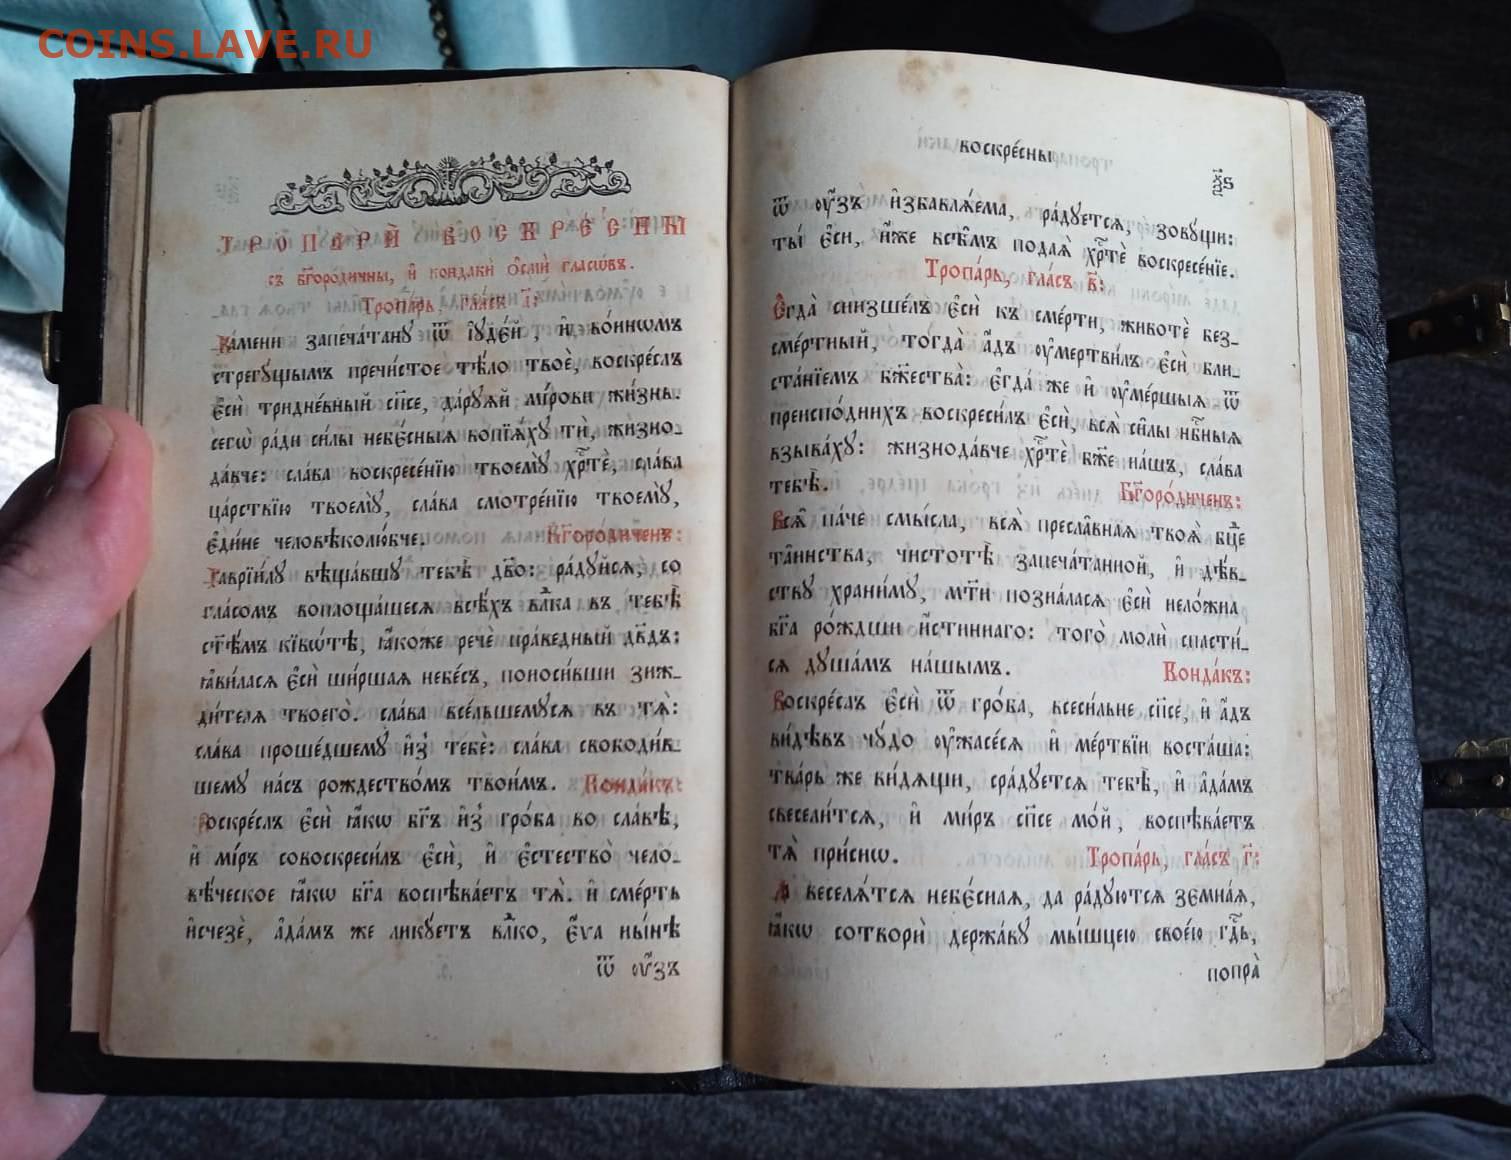 COINS.LAVE.RU
ТРОПАРИ̑ ВОСКРЕ́СНЫ
съ бг҃оро́дичны, и҆ кондаки̑ ѻ҆сми́ гласѡ́въ.
Тропа́рь, гла́съ а҃:
Ка́мени запеча́тану ѿ і҆ꙋдє́й, и҆ во́инѡмъ
стрегꙋ́щымъ пречи́стое тѣ́ло твоѐ, воскре́слъ
є҆сѝ тридне́вный сп҃се, да́рꙋѧй мі́рови жи́знь.
сегѡ̀ ра́ди си̑лы небє́сныѧ вопїѧ́хꙋ тѝ, жизно-
да́вче: сла́ва воскресе́нїю твоемꙋ̀ хрⷭ҇тѐ, сла́ва
ца́рствїю твоемꙋ̀, сла́ва смотре́нїю твоемꙋ̀,
є҆ди́не человѣколю́бче. Бг҃оро́диченъ:
Гаврїи́лꙋ вѣща́вшꙋ тебѣ̀ дв҃о: ра́дꙋйсѧ, со
гла́сомъ воплоща́шесѧ всѣ́хъ влⷣка въ тебѣ̀
ст҃ѣ́мъ кївѡ́тѣ, ꙗ҆́коже речѐ пра́ведный дв҃дъ:
ꙗ҆ви́ласѧ є҆сѝ ши́ршаѧ небе́съ, поноси́вши зиж-
ди́телѧ твоего̀. сла́ва все́льшемꙋсѧ въ тѧ̀:
сла́ва проше́дшемꙋ и҆з̾ тебѐ: сла́ва свободи́в-
шемꙋ на́съ рождество́мъ твои́мъ. Конда́къ:
Воскре́слъ є҆сѝ ꙗ҆́кѡ бг҃ъ и҆з̾ гро́ба во сла́вѣ,
и҆ мі́ръ совоскреси́лъ є҆сѝ, и҆ є҆стество̀ чело-
вѣ́ческое ꙗ҆́кѡ бг҃а воспѣва́етъ тѧ̀. и҆ сме́рть
и҆счезѐ, а҆да́мъ же ликꙋ́етъ влⷣко, є҆́ѵа ны́нѣ
ѿ ᲂу҆́зъ
воскре́сны
ѿ ᲂу҆́зъ и҆збавлѧ́ема, ра́дꙋетсѧ, зовꙋ́щи:
ты̀ є҆сѝ, и҆́же всѣ̑мъ подаѧ̀ хрⷭ҇тѐ воскресе́нїе.
Тропа́рь, гла́съ в҃:
Є҆гда̀ снизше́лъ є҆сѝ къ сме́рти, животѐ без-
сме́ртный, тогда̀ а҆́дъ ᲂу҆мертви́лъ є҆сѝ бли-
ста́нїемъ бж҃ества̀: є҆гда́ же и҆ ᲂу҆ме́ршыѧ ѿ
преиспо́днихъ воскреси́лъ є҆сѝ, всѧ̑ си̑лы нбⷭ҇ныѧ
взыва́хꙋ: жизнода́вче хрⷭ҇тѐ бж҃е на́шъ, сла́ва
тебѣ̀. Бг҃оро́диченъ:
Всѧ̑ па́че смы́сла, всѧ̑ пресла̑внаѧ твоѧ̑ бцⷣе
та̑инства, чистотѣ̀ запеча́танной, и҆ дѣ́в-
ствꙋ храни́мꙋ, мт҃и позна́ласѧ є҆сѝ нело́жна
бг҃а ро́ждши и҆́стиннаго: того̀ молѝ спасти́-
сѧ дꙋша́мъ на́шымъ. Конда́къ:
Воскре́слъ є҆сѝ ѿ гро́ба, всеси́льне сп҃се, и҆ а҆́дъ
ви́дѣвъ чꙋ́до ᲂу҆жасе́сѧ и҆ ме́ртвїи воста́ша:
тва́рь же ви́дѧщи, сра́дꙋетсѧ тебѣ̀, и҆ а҆да́мъ
свесели́тсѧ, и҆ мі́ръ сп҃се мо́й, воспѣва́етъ
тѧ̀ при́снѡ. Тропа́рь, гла́съ г҃:
Да веселѧ́тсѧ небє́снаѧ, да ра́дꙋютсѧ земна̑ѧ,
ꙗ҆́кѡ сотворѝ держа́вꙋ мы́шцею свое́ю гдⷭ҇ь,
попра̀